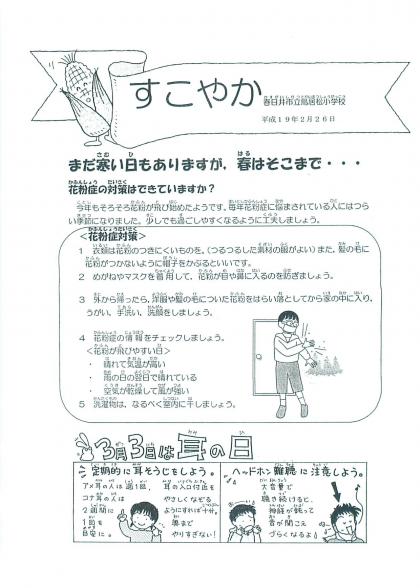 すこやか
春日井市立鳥居松小学校
平成19年2月26日
まだ寒い日もありますが、春はそこまで・・・
花粉症の対策はできていますか？
今年もそろそろ花粉が飛び始めたようです。毎年花粉症に悩まされている人にはつら
い季節になりました。少しでも過ごしやすくなるように工夫しましょう。
＜花粉症対策＞
1 衣類は花粉のつきにくいものを。（つるつるした素材の服がよい）また、髪の毛に
花粉がつかないように帽子をかぶるといいです。
2 めがねやマスクを着用して、花粉が目や鼻に入るのを防ぎましょう。
3 外から帰ったら、洋服や髪の毛についた花粉をはらい落としてから家の中に入り、
うがい、手洗い、洗顔をしましょう。
4 花粉症の情報をチェックしましょう。
＜花粉が飛びやすい日＞
・ 晴れて気温が高い
・ 雨の日の翌日で晴れている
・ 空気が乾燥して風が強い
5 洗濯物は、なるべく室内に干しましょう。
3月3日は耳の日
定期的に耳そうじをしよう。
アメ耳の人は週1回、
コナ耳の人は
2週間に
1回を
目安に。
耳の入口付近を
やさしくなぞる
ようにすれば十分。
奥まで
やりすぎない！
ヘッドホン難聴に注意しよう。
大音量で
聴き続けると、
神経が鈍って
音が聞こえ
づらくなるよ